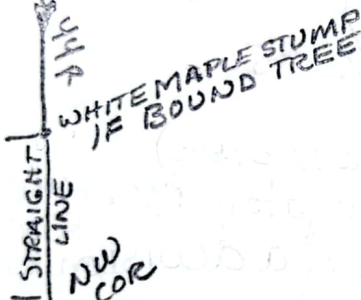 WHITE MAPLE STUMP
IF BOUND TREE
STRAIGHT
LINE
NW
COR